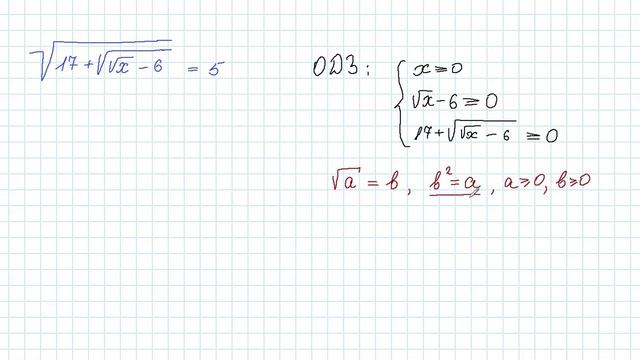 √(17 + √(√x - 6)) = 5
ОДЗ:
x ≥ 0
√x - 6 ≥ 0
17 + √(√x - 6) ≥ 0
√a = b, b² = a, a ≥ 0, b ≥ 0